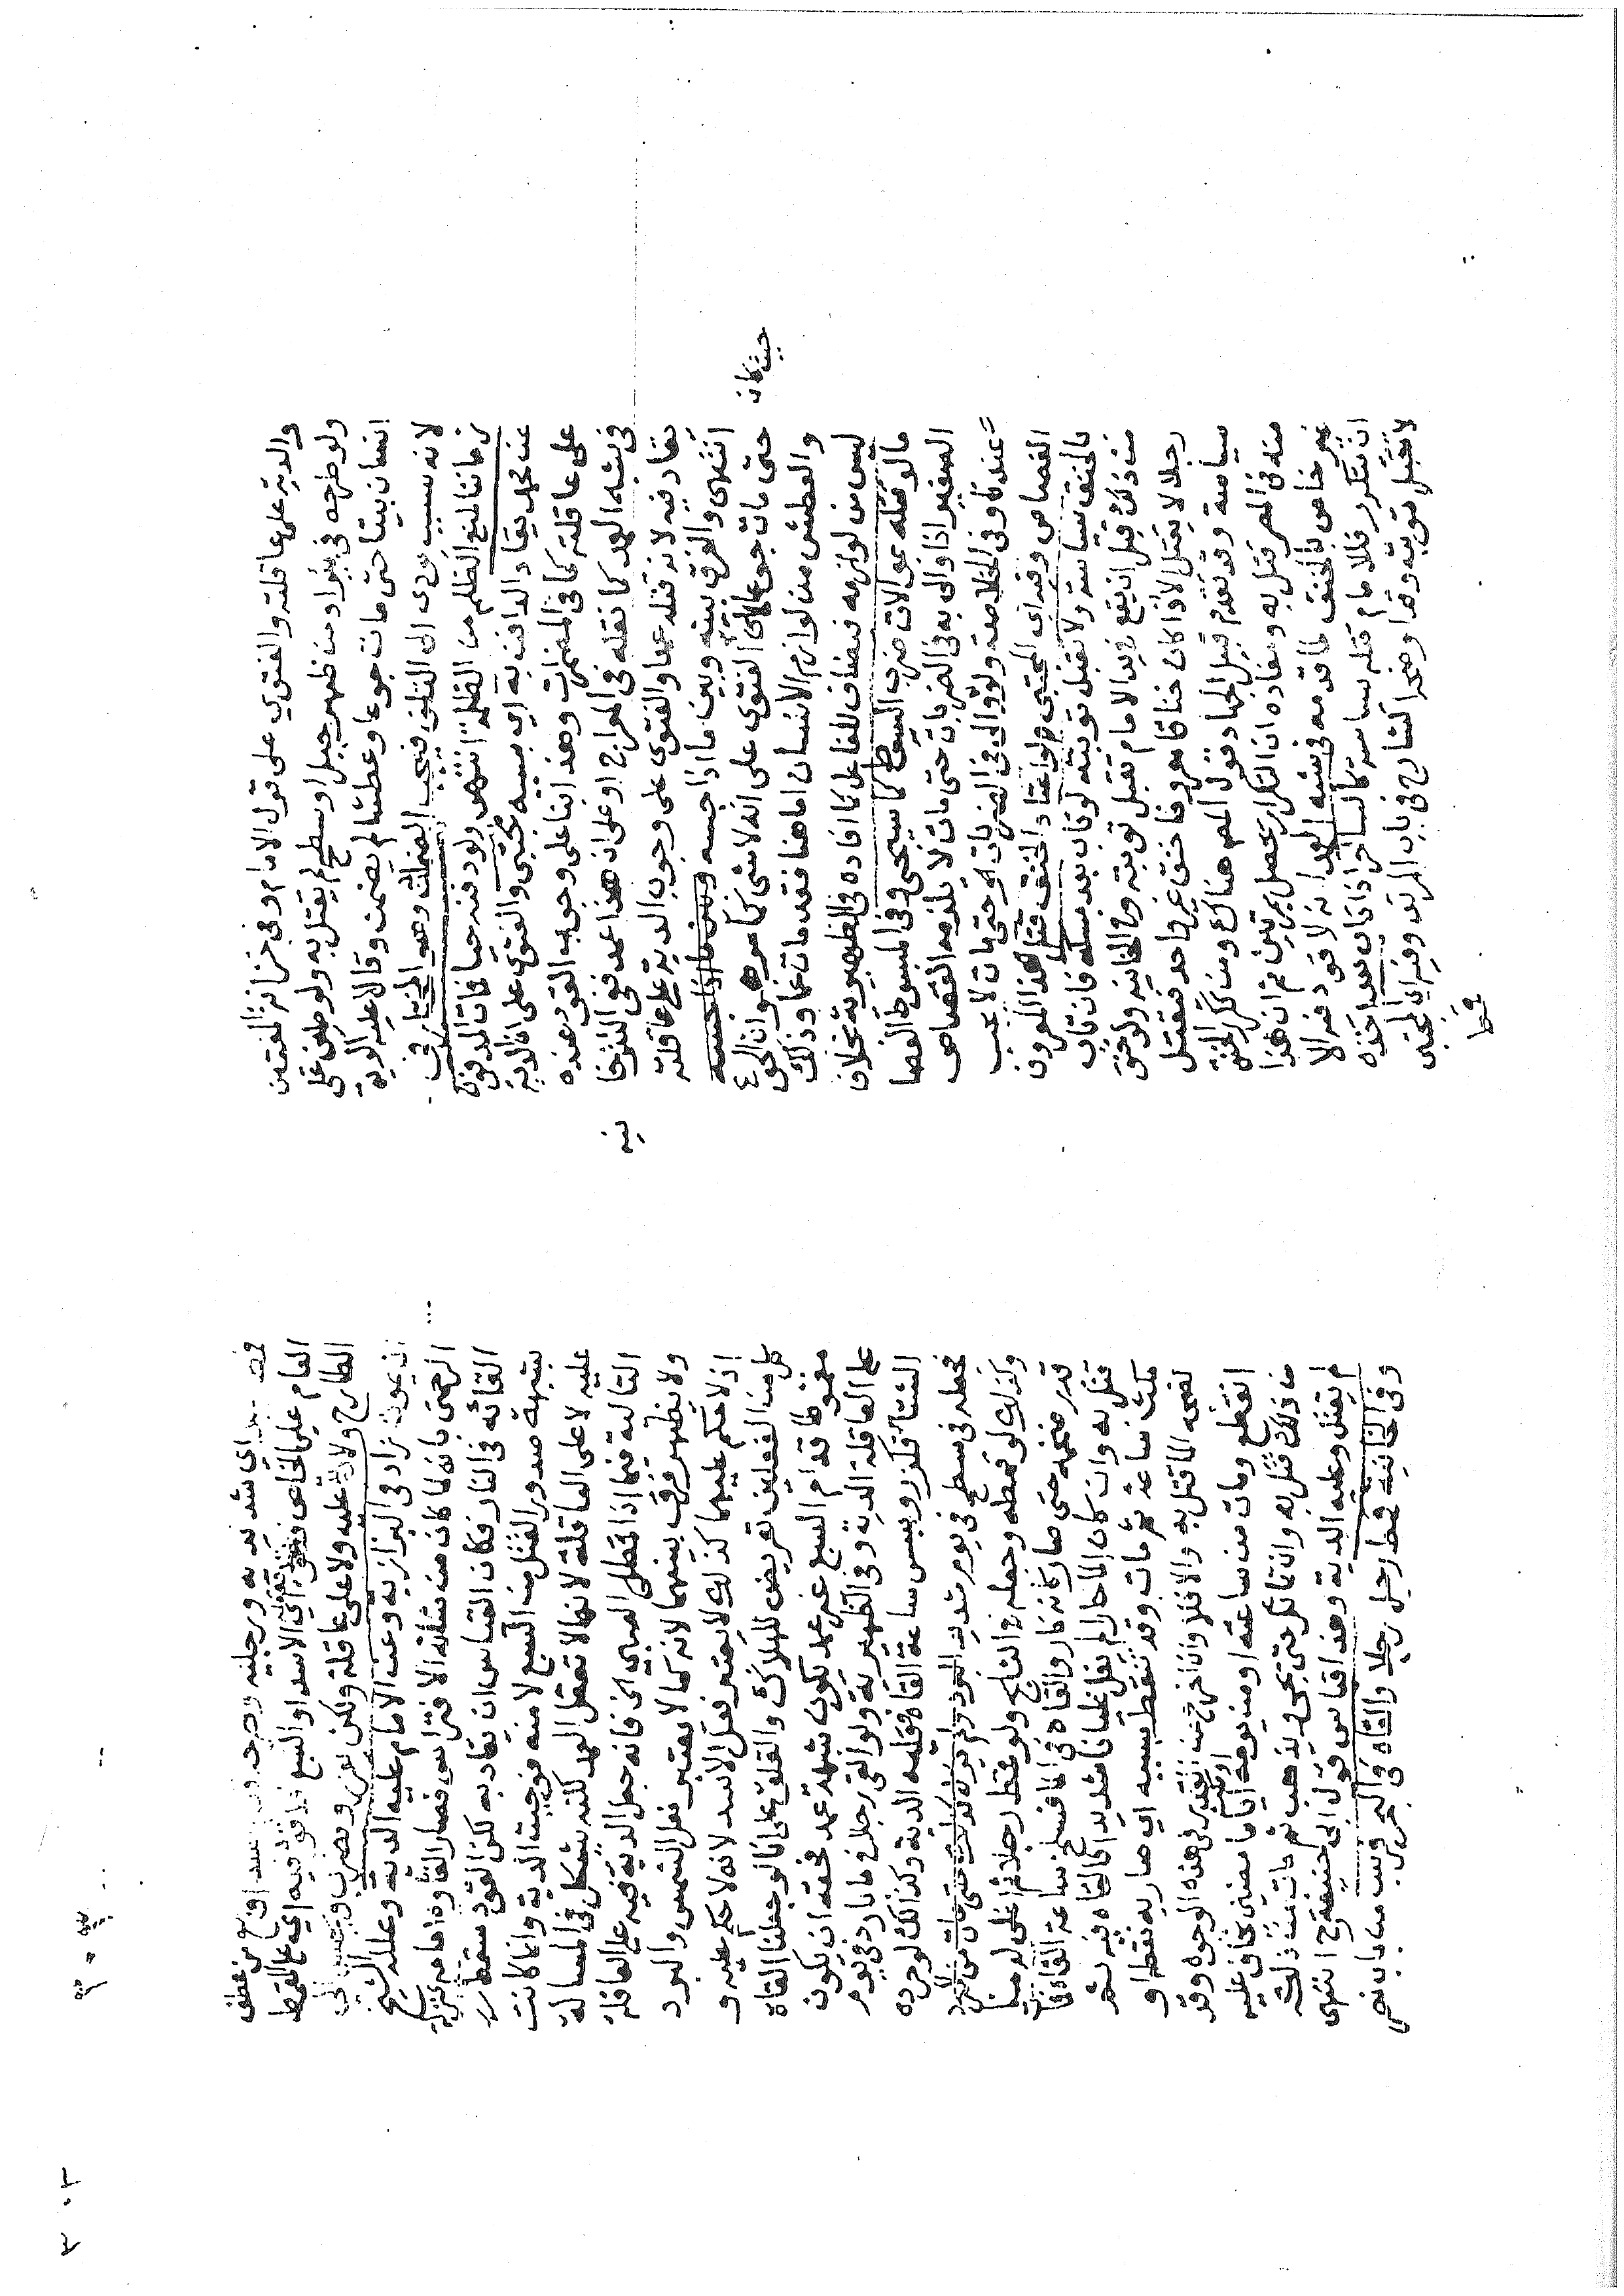 والدية على عاقلته والفتوى على قول الامام وفي خزانة المفتين
ولو طرحه في بئر او من ظهر جبل او سطح لم يقتل به ولو طين على
انسان بيتا حتى مات جوعا وعطشا لم يضمن وقالا عليه الدية
لانه سبب يودى الى التلف فيجب الضمان وهو المختار في
زماننا لمنع الظلم من الظلمة انتهى ولو دفنه حيا فمات المدفون
عن محمد يقاد الدافن به اي بسببه مجتبى والفتوى على ان الدية
على عاقلته كما في المضمرات وهذا ابتنا على وجوب القود عنده
في شبه العمد كما نقله في المعراج او على ان هذا عمد ففي التتارخا
نيه
يقاد فيه لانه قتله عمدا والفتوى على وجوب الدية على عاقلته
انتهى والفرق بينه وبين ما اذا حبسه
حتى مات جوعا حيث كان الفتوى على انه لا شي كما مر هو ان الجوع
والعطش من لوازم الانسان اما هنا فقد مات غما وذلك
ليس من لوازمه فيضاف للفاعل كما افاده في الظهيرية بخلاف
ما لو قتله بموالاة ضرب السوط كما سيجي وفي المبسوط القصا
الصغير اذا والى به في الضربات حتى مات لا يلزمه القصاص
عندنا وفي الخلاصة ولو والى في الضربات حتى مات لا يجب
القصاص وقيد في المجتبى ولو اعتاد الخنق قتل هذا المعروف
بالخنق سياسة ولا تقبل توبته لو تاب بعد مسكه فان تاب
من ذلك قبل ان يقع في يد الامام تقبل توبته وفي الخانيه ولو خنق
رجلا لا يقتل الا اذا كان خناقا معروفا خنق غير واحد فيقتل
سياسة وقد تقدم قبيل الجهاد قول المص هناك ومن تكرر الخنق
منه في المصر قتل به ومفاده ان التكرار يحصل بمرتين ثم ان هذا
غير خاص بالخنق لما قدمه في شبه العمد انه لا قود فيه الا
ان تتكرر فللامام قتله سياسة كالساحر اذا كان بعد اخذه
لا تقبل توبته وتمامه كشارح في باب المرتد وفي المجتبى
قمط
قمط رجلا اي شد يديه ورجليه وطرحه قدام اسد او سبع من عطف
العام على الخاص فقتله اي الاسد او السبع فلا قود فيه اي على القامط
الطارح ولا دية عليه ولا على عاقلته ولكن يعزر ويضرب ويحبس الى
ان يموت زاد في البزازية وعن الامام عليه الدية وعلله الشيخ
الرحمتي بانه لما كان من شانه الافتراس فصار القاؤه امامه بمنزلة
القائه في النار فكان القياس ان يقاد به لكن القود سقط
بشبهة صدور القتل من السبع لا منه فوجبت الدية وانما كانت
عليه لا على العاقلة لانها لا تعقل العمد لكنه يشكل في المسالة
التالية فيما اذا قمط الصبي اي فانه جعل الدية فيه على العاقلة
ولا يظهر فرق بينهما لانه كما لا يعتبر فعل الشمس والبرد
اذ لا حكم عليهما كذلك لا يعتبر فعل الاسد لانه لا حكم عليه و
كل من الفعلين تعريض للهلاك والتلف على انا لو جعلنا القاه
مقموطا قدام السبع غير عمد يكون شبهة عمد فحقه ان يكون
على العاقلة الدية وفي الظهيرية ولو القى رجلا في ماء بارد في يوم
الشتا فكزز ويبس ساعة القاه فعليه الدية وكذلك لو جرده
فجعله في سطح في يوم شديد البرد ولم يزل كذلك حتى مات من البرد
وكذلك لو قمطه وجعله في الثلج ولو قمط رجلا ثم اغلى له ماء
قدر ضخمة حتى صار كانه نار والقاه في الماء فسلخ ساعة القاه فمات
قتل به وان كان الماء حارا لم يغل غليانا شديدا فالقاه فيه ثم
مكث ساعة ثم مات وقد تنفط بسببه اي صار به نفط او
نضجه الماء قتل به والا فلا وان اخرج من القدر في هذه الوجوه وقد
انقطع ومات من ساعته او من يومه او مكث اياما مضنى يخاف عليه
من ذلك قتل به وان تماثل حتى يجي ويذهب ثم مات من ذلك
لم يقتل وعليه الدية وهذا قياس قول ابي حنيفة رح انتهى
وفي الخانية قمط رجل رجلا والقاه في البحر فرسب من باب نصر